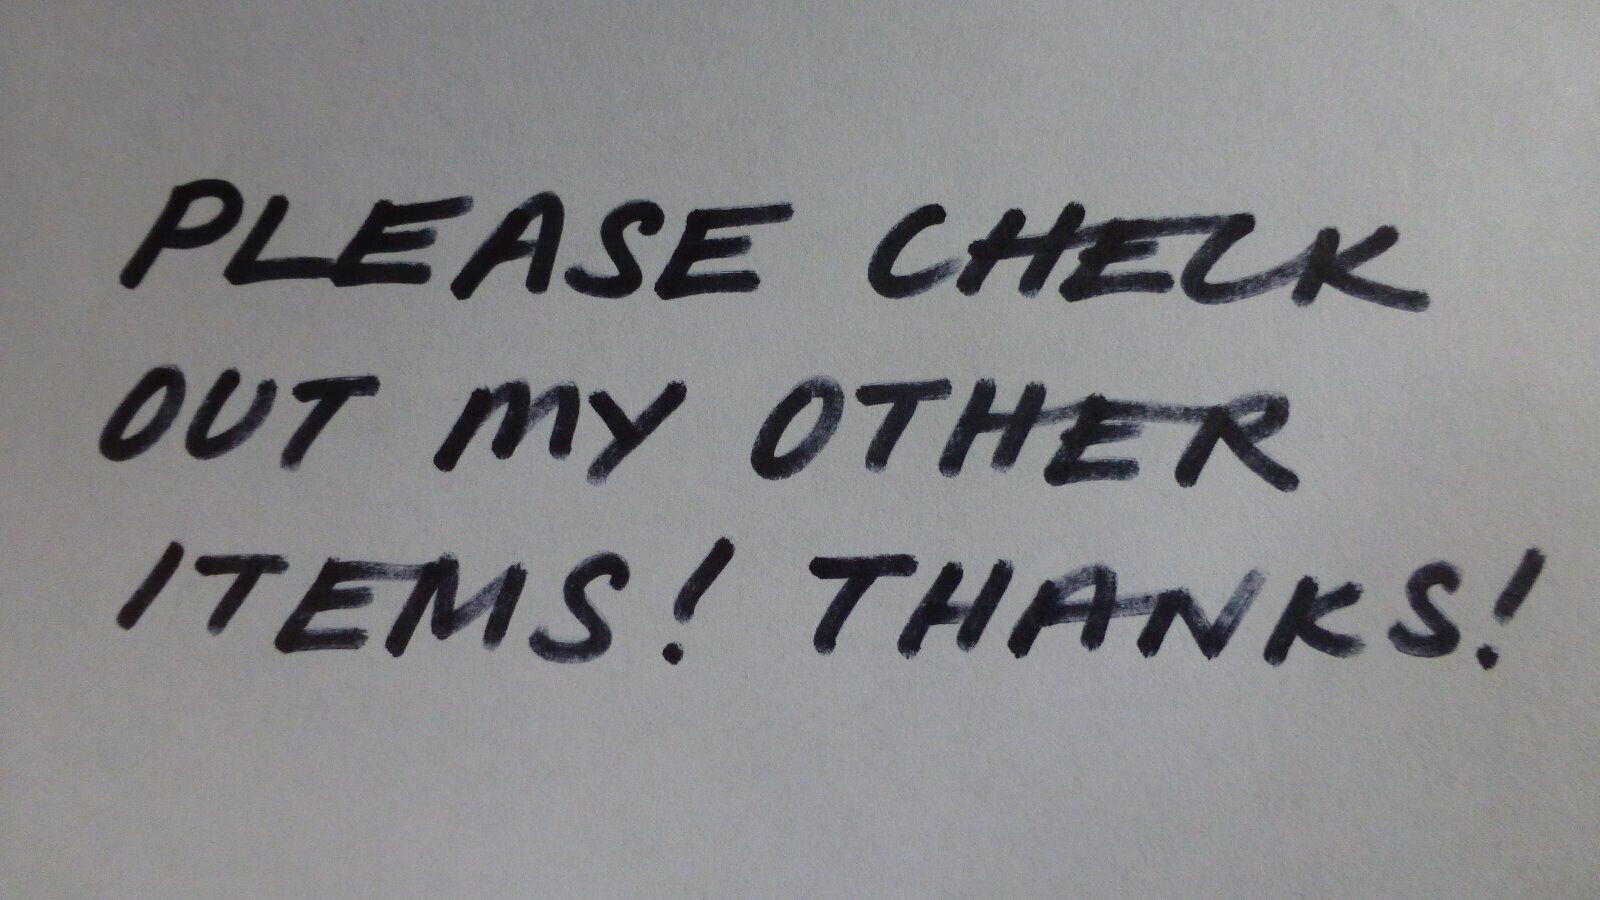 PLEASE CHECK
OUT MY OTHER
ITEMS! THANKS!